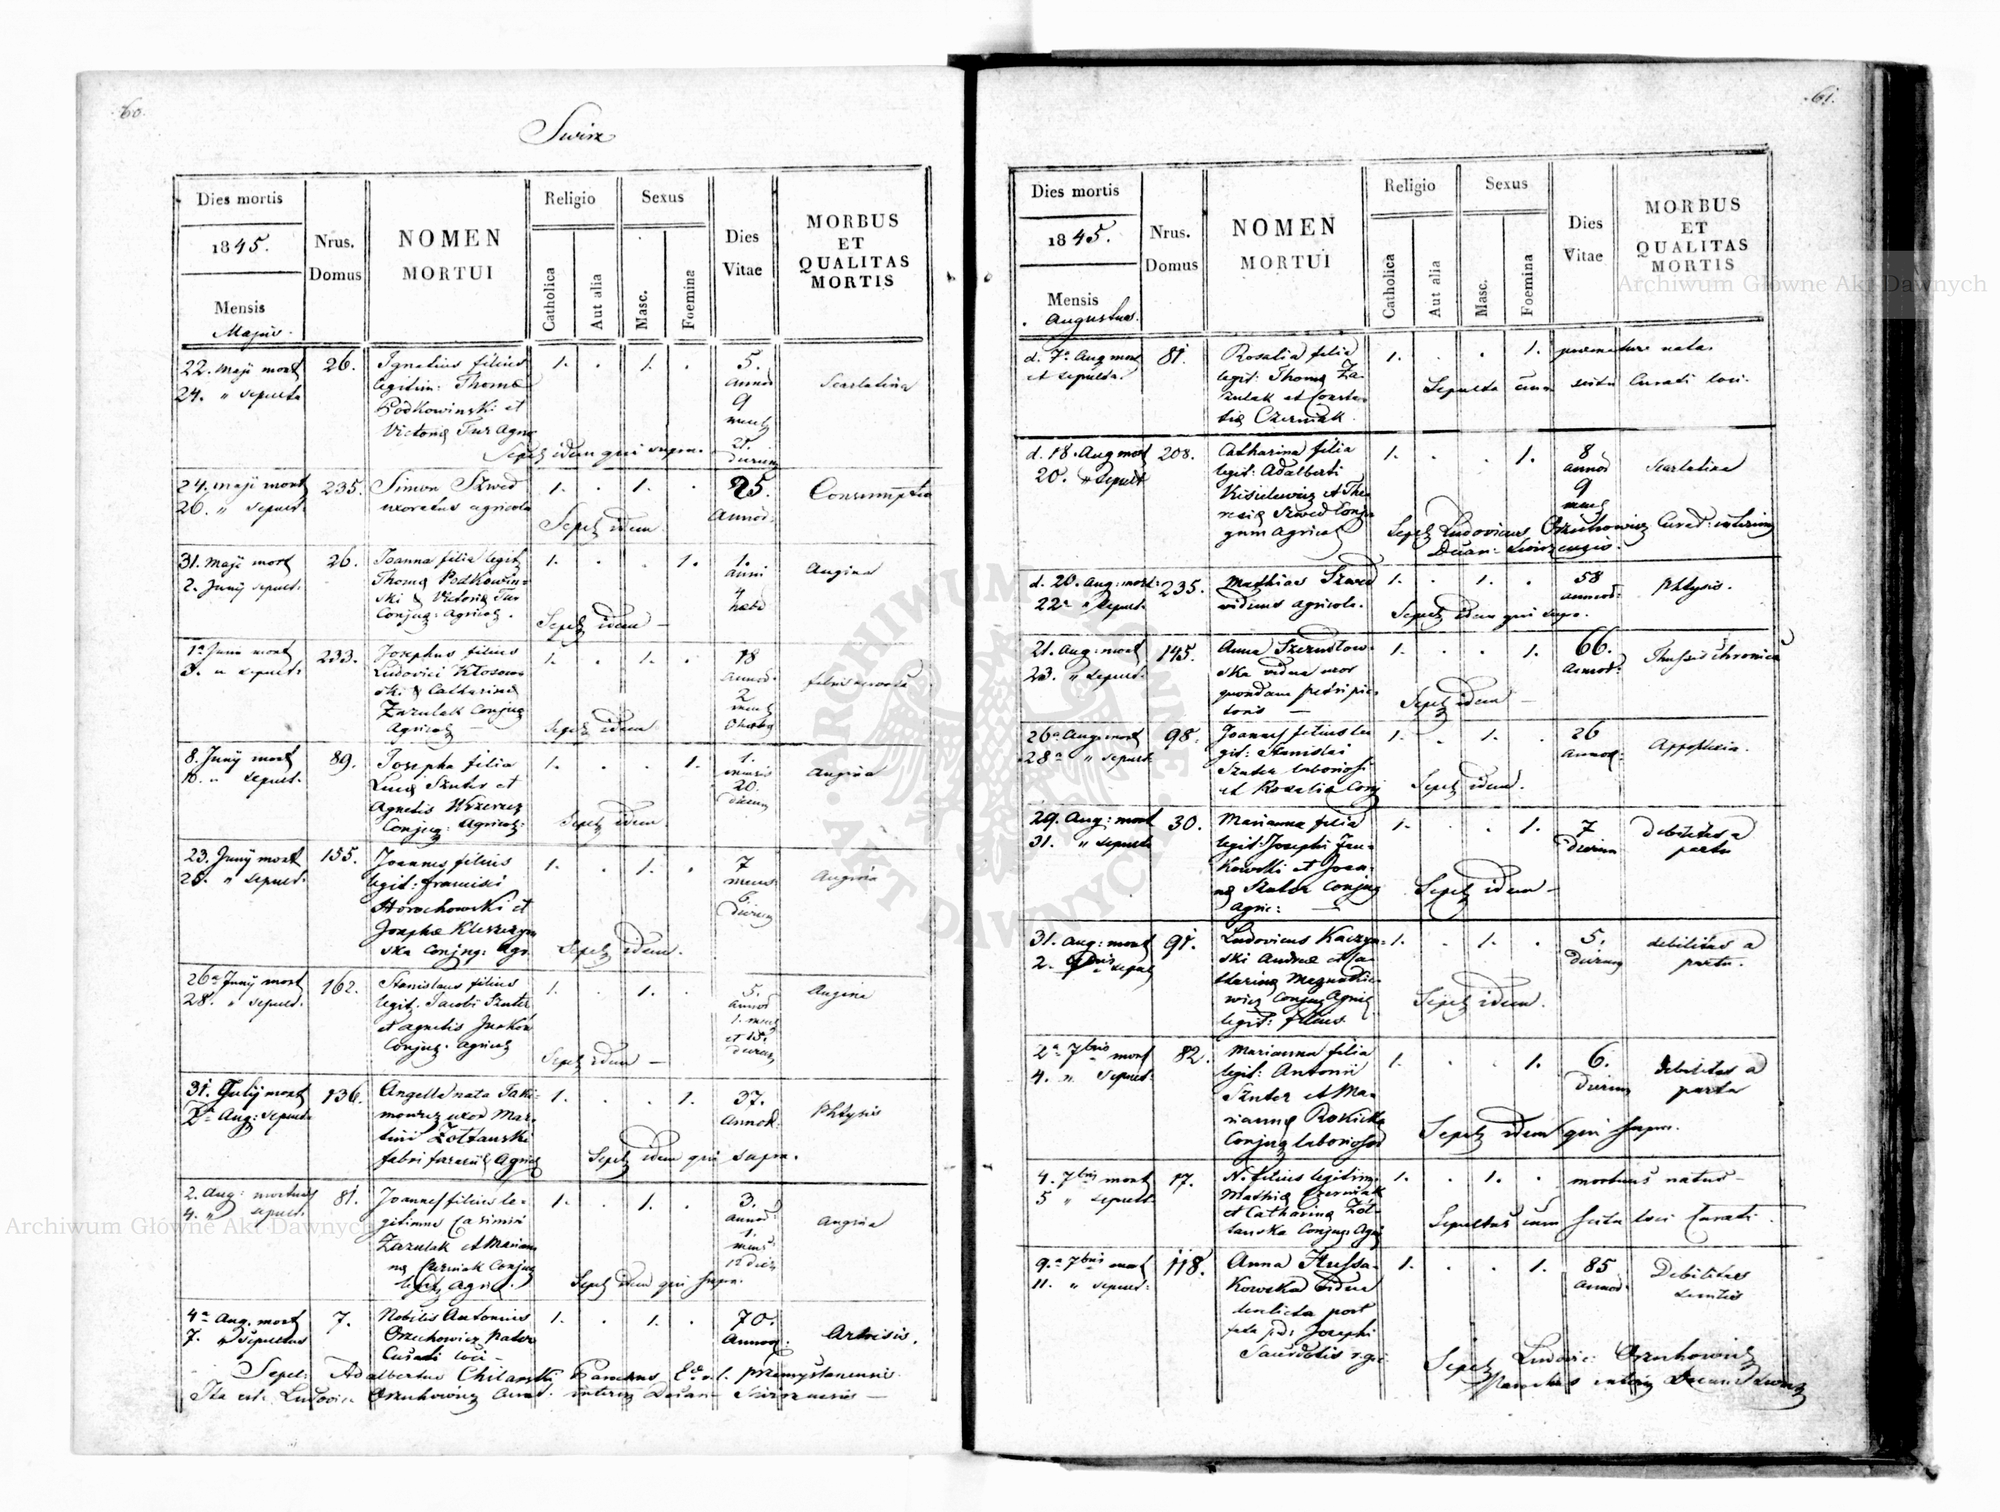 60.
Swirz
Dies mortis
1845.
Mensis
Majus.
Nrus.
Domus
NOMEN
MORTUI
Religio
Catholica
Aut alia
Sexus
Masc.
Foemina
Dies
Vitae
MORBUS
ET
QUALITAS
MORTIS
22. Maji mort 26. Ignatius filius 1. . 1. . 5.
24. " sepult legitim: Thoma annor Scarlatina
Podkowinski et 9
Victoria Tur Agri mens
Sepel idem qui supra. 21.
dierum
24. Maji mort 235. Simon Szwed 1. . 1. . 25. Consumptio
26. " sepult: uxoratus agricola Annor:
Sepel idem
31. Maji mort 26. Joanna filia legit 1. . . 1. 1. Angina
2. Junij sepult: Thoma Podkowin- anni
ski & Victoria Tur 4
Conjug: agricol. hebd
Sepel idem
1a Junii mort 233. Josephus filius 1. . 1. . 18
3. " sepult: Ludovici Klosow- annor.
ski & Catharina 2
Zazulak Conjug mens
Agricol Sepel idem
8. Junij mort 89. Josepha filia 1. . . 1. 1. Angina
10. " sepult: Luca Szuter et mensis
Agnetis 20.
Conjug: Agricol: dierum
Sepel idem
23. Junij mort 155. Joannes filius 1. . 1. . 7 Angina
25. " sepult: legit: Francisci mens
Horochowski et 6.
Josepha dierum
ska Conjug: Agr. Sepel idem.
26a Junij mort 162. Stanislaus filius 1. . 1. . 5. Angina
28. " sepult: legit: Jacobi Szuter annor
et Agnetis 1. mens
Conjug. agricol et 15.
Sepel idem dierum
31. Julij mort 136. Angella nata Jaki- 1. . . 1. 37. Phtysis
2a Aug: sepulta mowicz uxor Mar- Annor.
tini Zoltanski
fabri Agric
Sepel idem qui supra.
2. Aug: mortuus 81. Joannes filius le- 1. . 1. . 3. Angina
4. " sepult: gitimus Casimiri annor:
Zazulak et Marian- 1.
na Czerniak Conjug mens
legit Agric. Sepel idem qui supra.
4a Aug. mort 7. Nobilis Antonius 1. . 1. . 70. Artrisis.
7. " sepultus Orzechowicz Pater Annor:
Curati loci
Sepel: Adalbertus Chilarski Parochus przemyslanensis
Ita est. Ludovic Orzechowicz Curat. interim Decan Swirzensis
61.
Dies mortis
1845.
Mensis
Augustus.
Nrus.
Domus
NOMEN
MORTUI
Religio
Catholica
Aut alia
Sexus
Masc.
Foemina
Dies
Vitae
MORBUS
ET
QUALITAS
MORTIS
d. 7a Aug mort 81. Rosalia filia 1. . . 1. premature nata.
et sepulta. legit: Thoma Za- Sepulta cum scitu Curati loci.
zulak et Constan-
tia Czerniak.
d. 18. Aug mort 208. Catharina filia 1. . . 1. 8 Scarlatina
20. " sepult legit: Adalberti annor
Kisielewicz et The- 9
resia Szwed Conju- mens
gum Agricol Sepel Ludovicus Orzechowicz Curat: interim
Decan: Swirzensis.
d. 20. Aug: mort: 235. Mathias Szwed 1. . 1. . 58 Phtysis.
22a " sepult viduus agricola. annor:
Sepel idem qui supr.
21. Aug: mort 145. Anna 1. . . 1. 66. Tussis chronica
23. " sepult: ska vidua uxor annor:
quondam Petri pic-
toris Sepel idem
26a Aug: mort 98. Joannes filius le- 1. . 1. . 26 Appoplexia.
28a " sepult git: Stanislai annor:
Szuter laboriosi
et Rosalia Conj Sepel idem.
29. Aug: mort 30. Marianna filia 1. . . 1. 7 debilitas a
31. " sepulta legit: Josephi Jan- dierum partu
kowski et Joan-
na Szuter Conjug Sepel idem
Agric:
31. Aug: mort 91. Ludovicus Kaczyn- 1. . 1. . 5. debilitas a
2. 7bris sepult ski Andrea et Ca- dierum partu.
tharina
wicz Conjug Agric Sepel idem.
legit: filius.
2a 7bris mort 82. Marianna filia 1. . . 1. 6. debilitas a
4. " sepult: legit: Antonii dierum partu
Szuter et Ma-
rianna Rokicka Sepel idem qui supra.
Conjug laboriosor
4. 7bris mort 17. N. filius legitim: 1. . 1. . mortuus natus
5 " sepult Mathia Czerniak
et Catharina Zol- Sepultus cum scitu loci Curati.
tanska Conjug Agri
9a 7bris mort 118. Anna Hussa- 1. . . 1. 85 Debilitas
11. " sepult: kowska vidua annor: senilis
derelicta post
Josephi
Sacerdotis r. gr: Sepel Ludovic: Orzechowicz
Parochus interim Decan Swirz
Archiwum Główne Akt Dawnych
Archiwum Główne Akt Dawnych
ARCHIWUM GŁÓWNE
AKT DAWNYCH